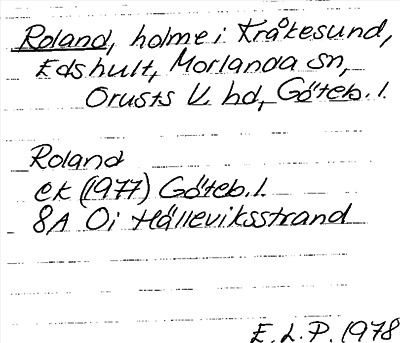 Roland, holme i Kråkesund,
Edshult, Morlanda sn,
Orusts V. hd, Göteb. l.
Roland
ek (1977) Göteb. l.
8A Oi Hälleviksstrand
E. L. P. 1978